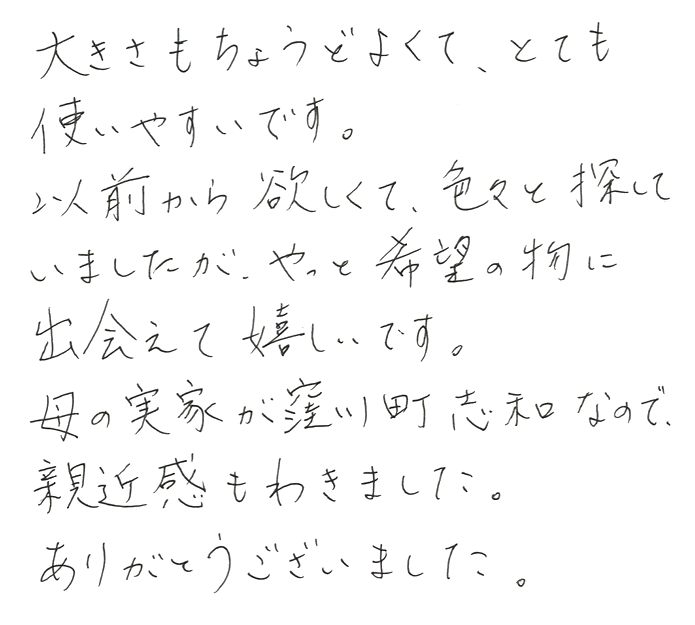 大きさもちょうどよくて、とても
使いやすいです。
以前から欲しくて、色々と探して
いましたが、やっと希望の物に
出会えて嬉しいです。
母の実家が窪川町志和なので、
親近感もわきました。
ありがとうございました。